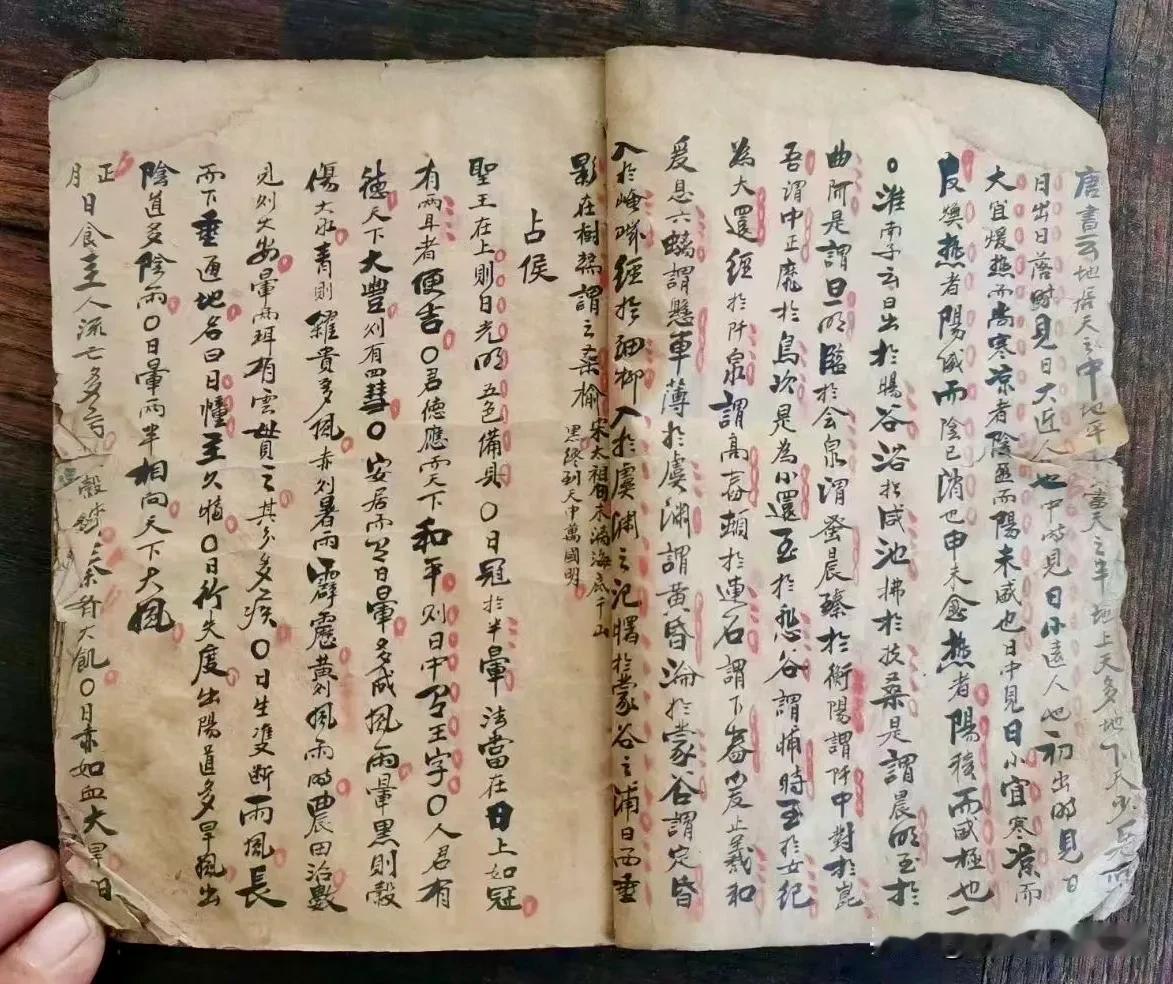 唐書云地居天之中地平 天之半地上天多地下天少
日出日落時見日大近人也中時見日小遠人也初出時見日
大宜煖熱而尚寒凉者陰盛而陽未盛也日中見日小宜寒凉而
反燠熱者陽盛而陰已消也申未愈熱者陽後而盛極也一
〇淮南子云日出於暘谷浴於咸池拂於技桑是謂晨明至於
曲阿是謂旦明臨於会泉謂蚤晨臻於衡陽謂阡中對於崑
吾謂中正靡於鳥次是為小還至於悲谷謂晡時至於女紀
為大還經於阡泉謂高舂頓於連石謂下舂爰止羲和
爰息六螭謂懸車薄於虞淵謂黄昏淪於蒙谷謂定昏
入於崦嵫經於細柳入於虞淵之汜曙於蒙谷之浦日西垂
影在樹 謂之桑榆 宋太祖 未 海底千山
黑 到天中萬國明
占侯
聖王在上則日光明五色備具〇日冠於半暈法當在日上如冠
有兩耳者便吉〇君德應 天下和平則日中 王字〇人君有
德天下大豐則有四彗〇安居而 日暈多成風雨暈黒則穀
傷大水青則糴貴多風赤則暑雨霹靂黄則風雨時農田治數
見則大安暈兩珥有雲貫之其分多疾〇日生雙断雨風長
而下垂通地名曰日幢主久晴〇日行失度出陽道多旱風出
陰道多陰雨〇日暈兩半相向天下大風
正月日食主人流亡多 穀 大飢〇日赤如血大旱日